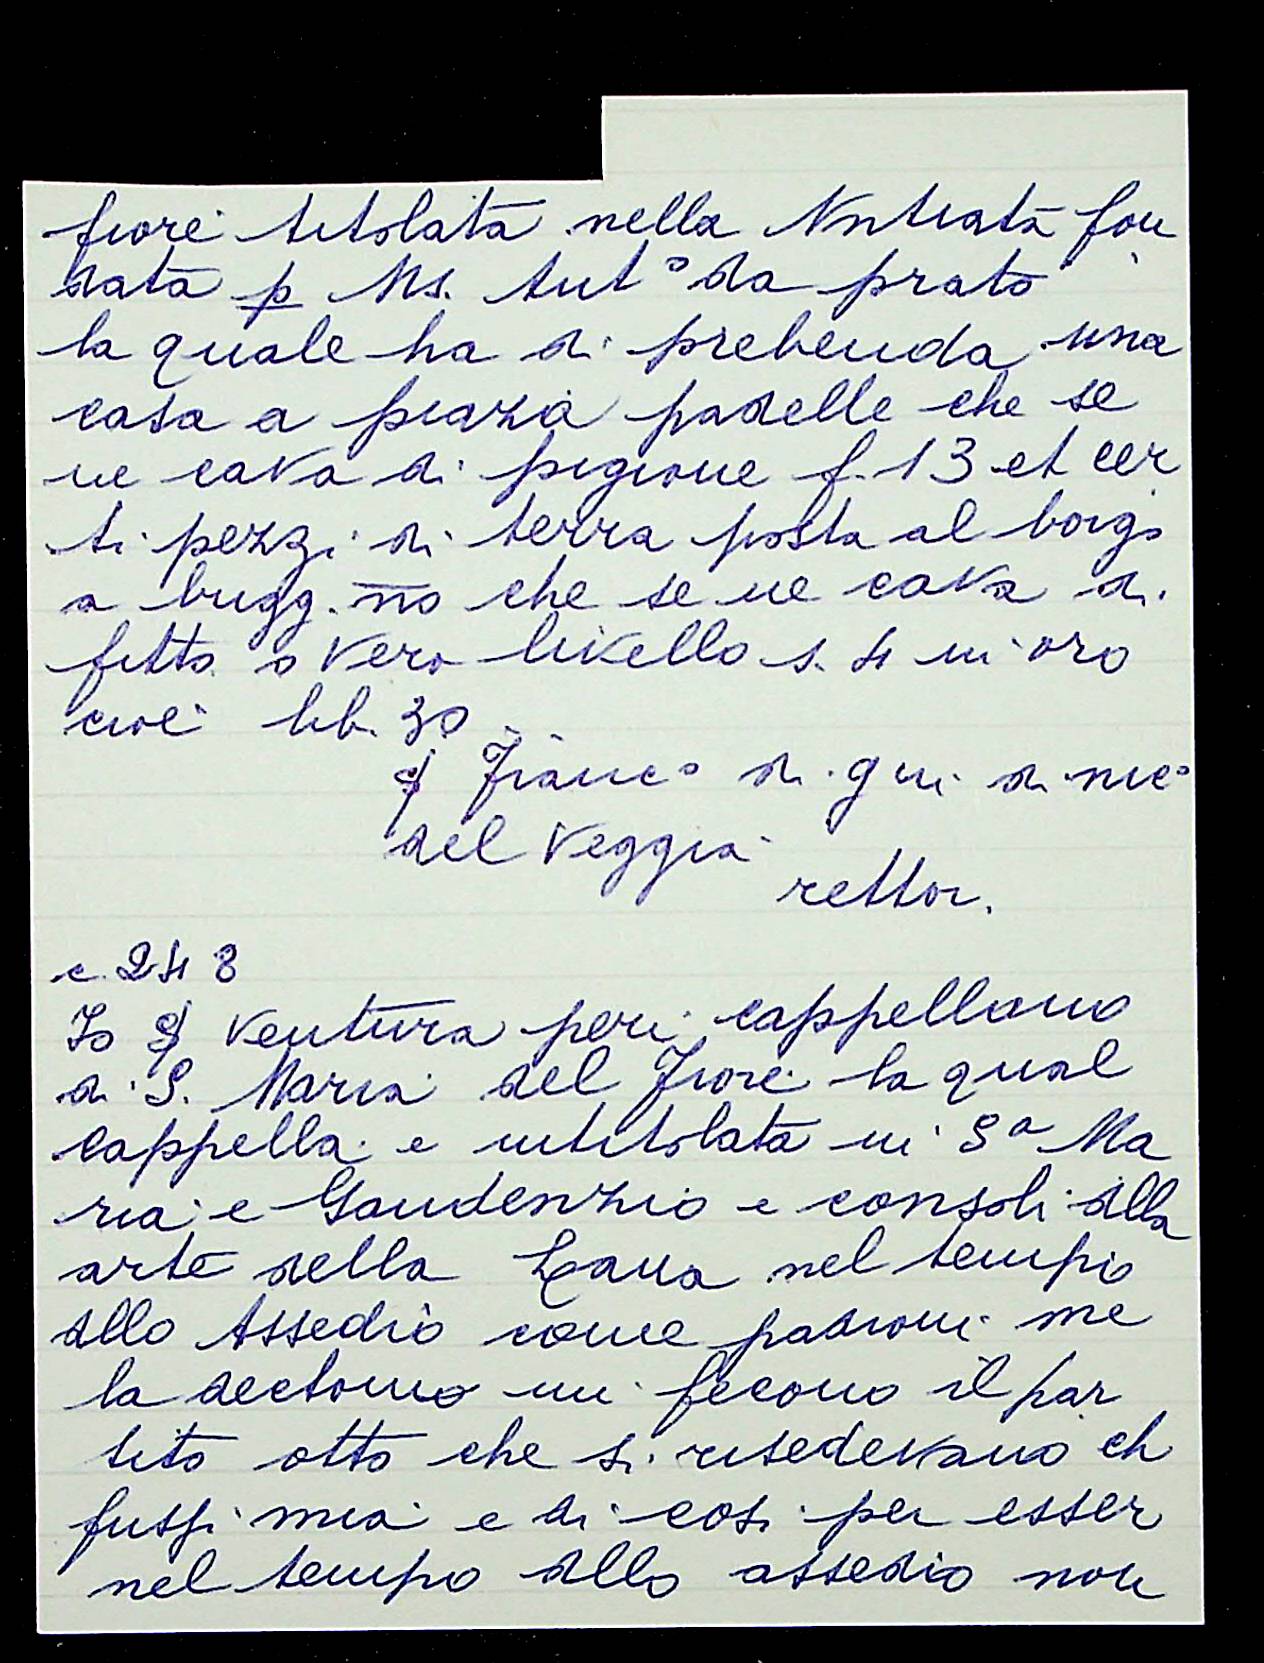 fiore titolata nella Nntiata fon
data p Ms. Ant° da prato
la quale ha di prebenda una
casa a piaza padelle che se
ne cava di pigione f. 13 et cer
ti pezzi di terra posta al borgo
a bugg.no che se ne cava di
fitto o vero livello s. 4 in oro
cioè lib. 30
Franc° di gui di nic°
del Veggia
rettor.
c. 248
Io Ventura peri cappellano
di S. Maria del Fiore la qual
cappella e intitolata in Sª Ma
ria e Gaudenzio e consoli dlla
arte della Lana nel tempio
dllo Assedio come padroni me
la dectono mi fecono il par
tito otto che si risedevano ch
fussi mia e di cosi per esser
nel tempo dllo assedio non